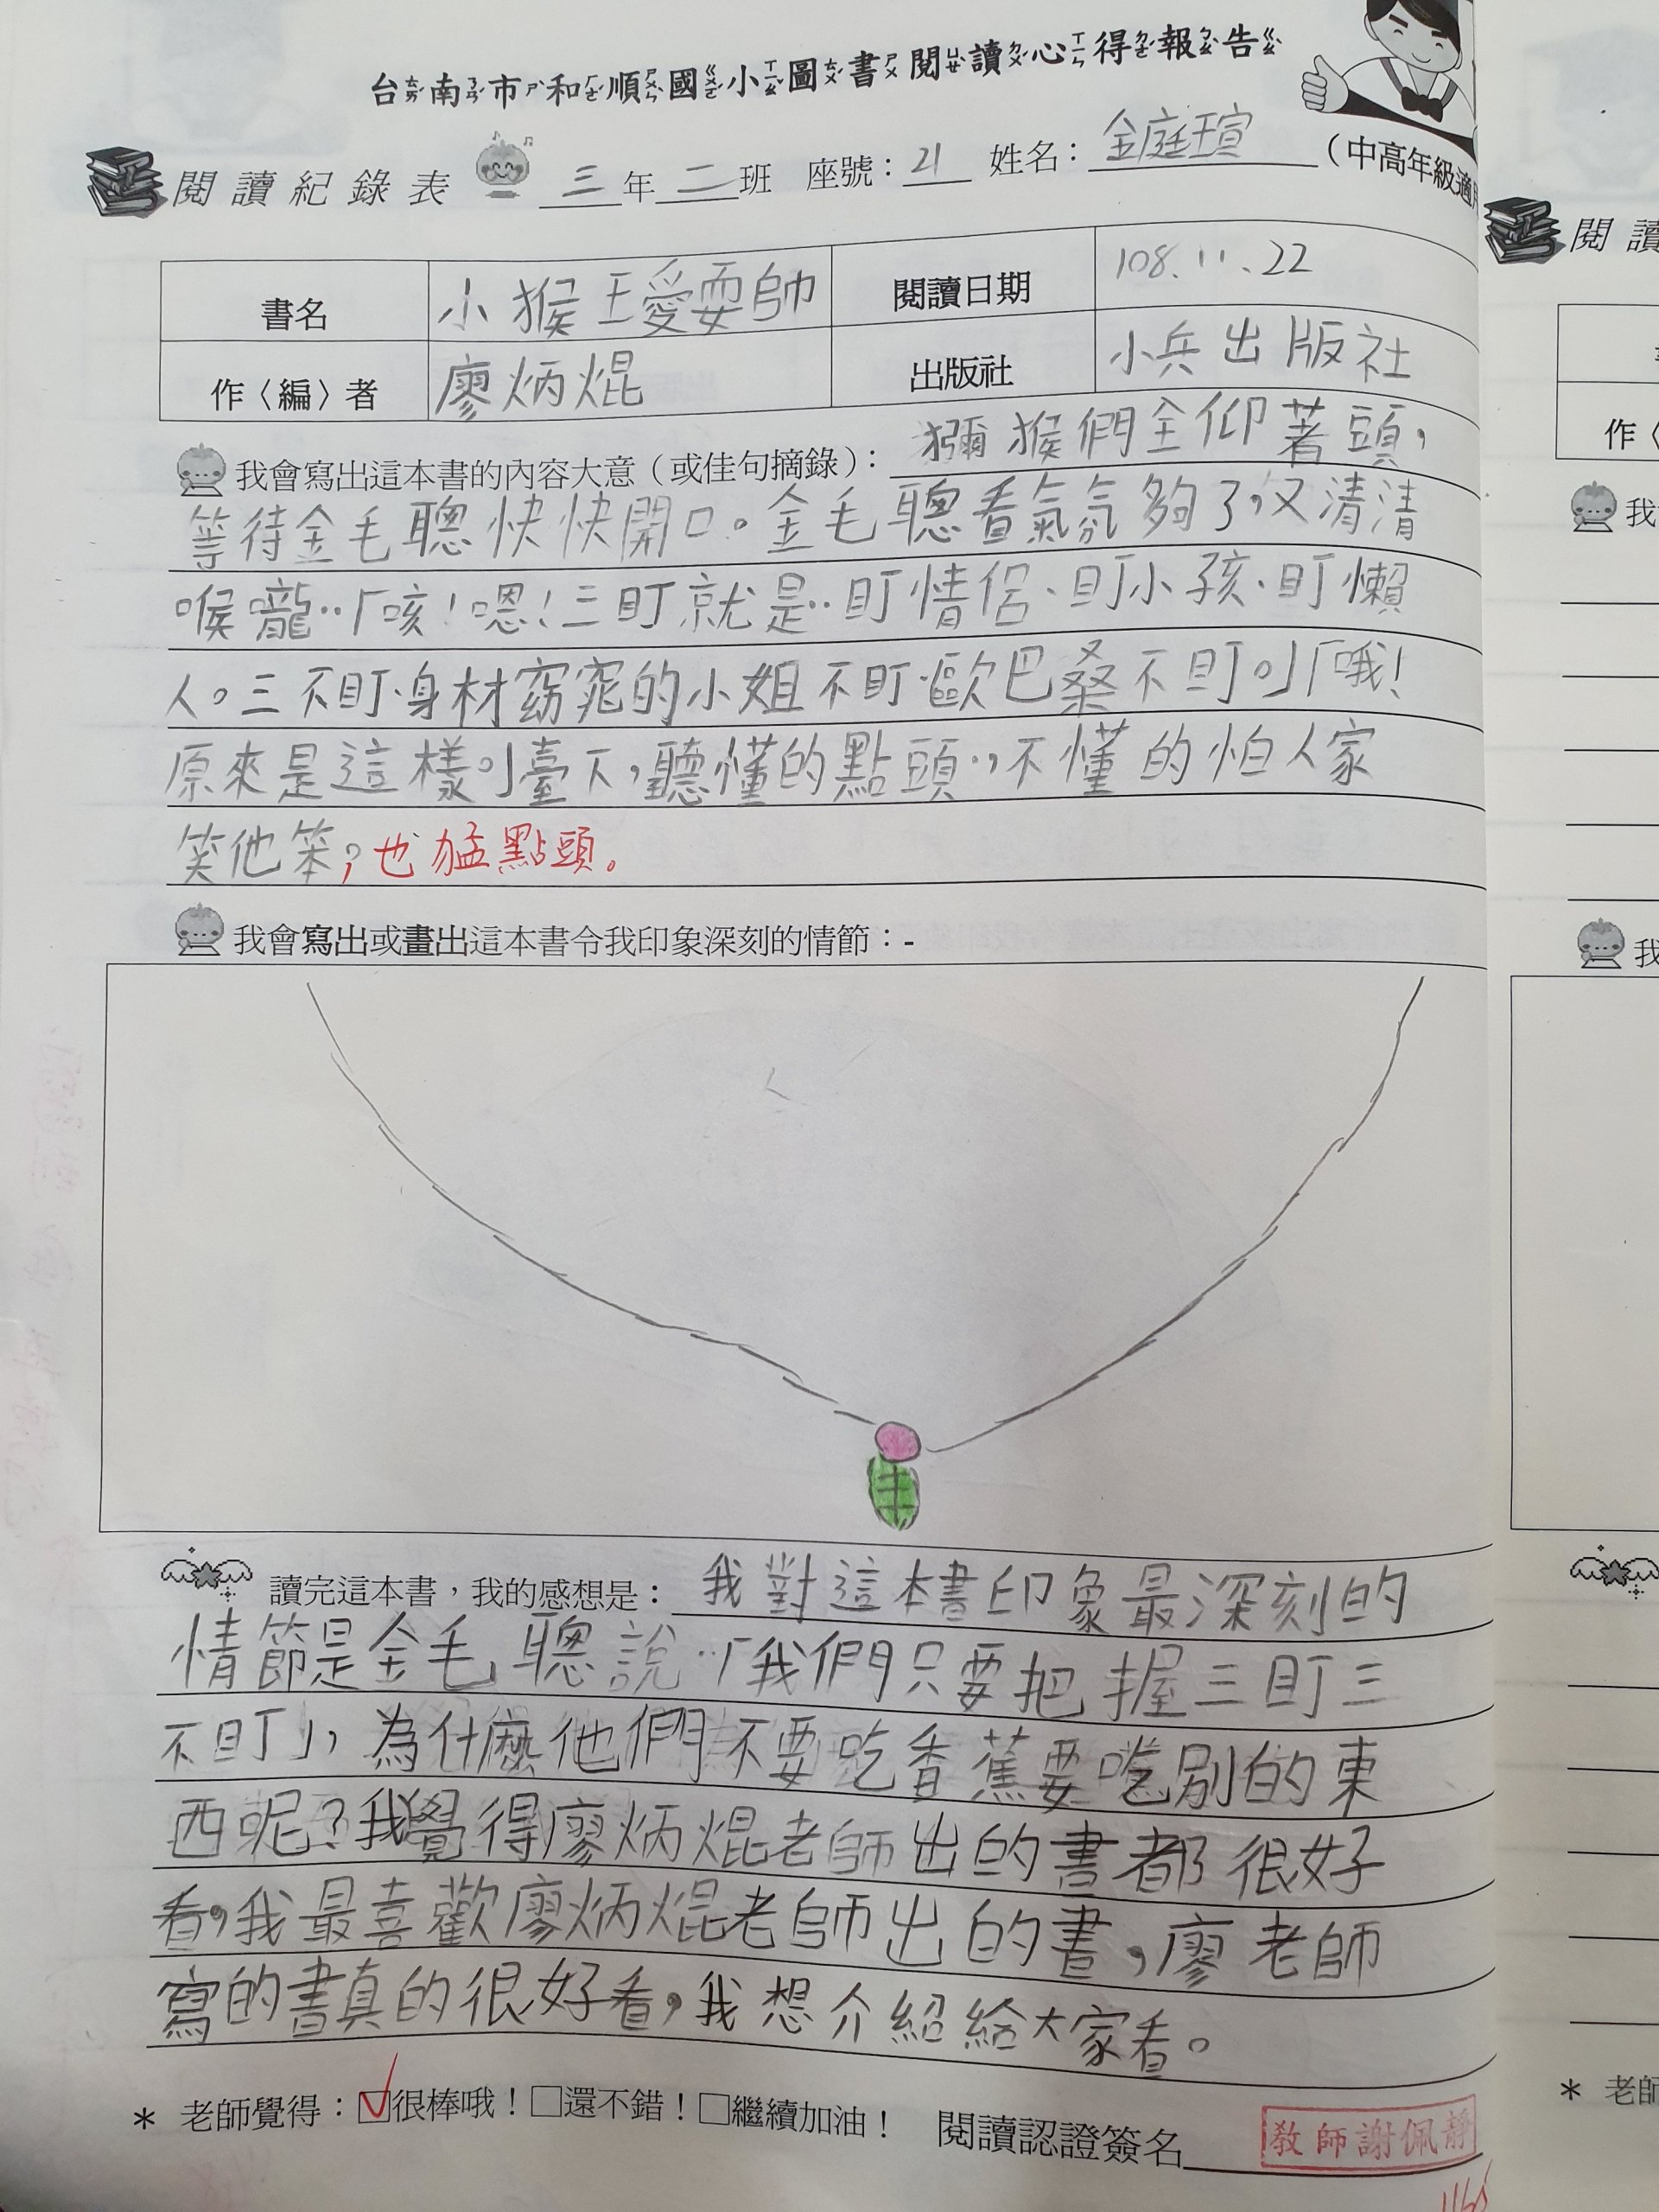 台南市和順國小圖書閱讀心得報告
閱讀紀錄表 三年二班 座號：21 姓名：金庭瑄（中高年級適
書名 小猴王愛耍帥 閱讀日期 108.11.22
作〈編〉者 廖炳焜 出版社 小兵出版社
我會寫出這本書的內容大意（或佳句摘錄）：獼猴們全仰著頭，
等待金毛聰快快開口。金毛聰看氣氛夠了，又清清
喉嚨：「咳！嗯！三盯就是：盯情侶、盯小孩、盯懶
人。三不盯、身材窈窕的小姐不盯、歐巴桑不盯。」「哦！
原來是這樣。」臺下，聽懂的點頭，不懂的怕人家
笑他笨，也猛點頭。
我會寫出或畫出這本書令我印象深刻的情節：-
讀完這本書，我的感想是：我對這本書印象最深刻的
情節是金毛聰說：「我們只要把握三盯三
不盯」，為什麼他們不要吃香蕉要吃別的東
西呢？我覺得廖炳焜老師出的書都很好
看，我最喜歡廖炳焜老師出的書，廖老師
寫的書真的很好看，我想介紹給大家看。
* 老師覺得：☑很棒哦！□還不錯！□繼續加油！ 閱讀認證簽名 教師謝佩靜
閱讀
作〈
我
我
* 老師